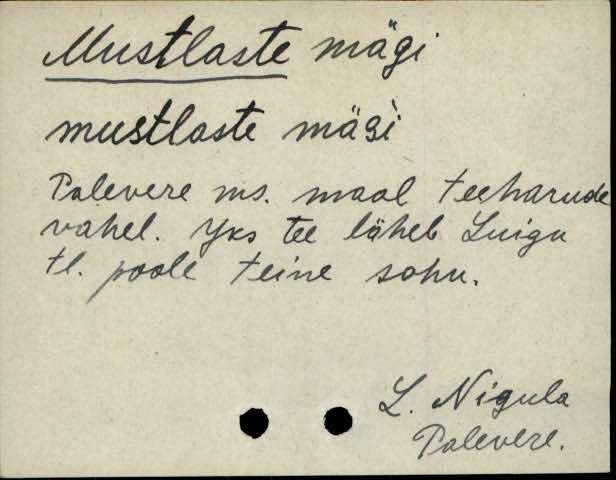 Mustlaste mägi
mustlaste mäG̀i
Palevere ms. maal teeharude
vahel. Yks tee läheb Luigu
tl. poole teine sohu.
L. Nigula
Palevere.